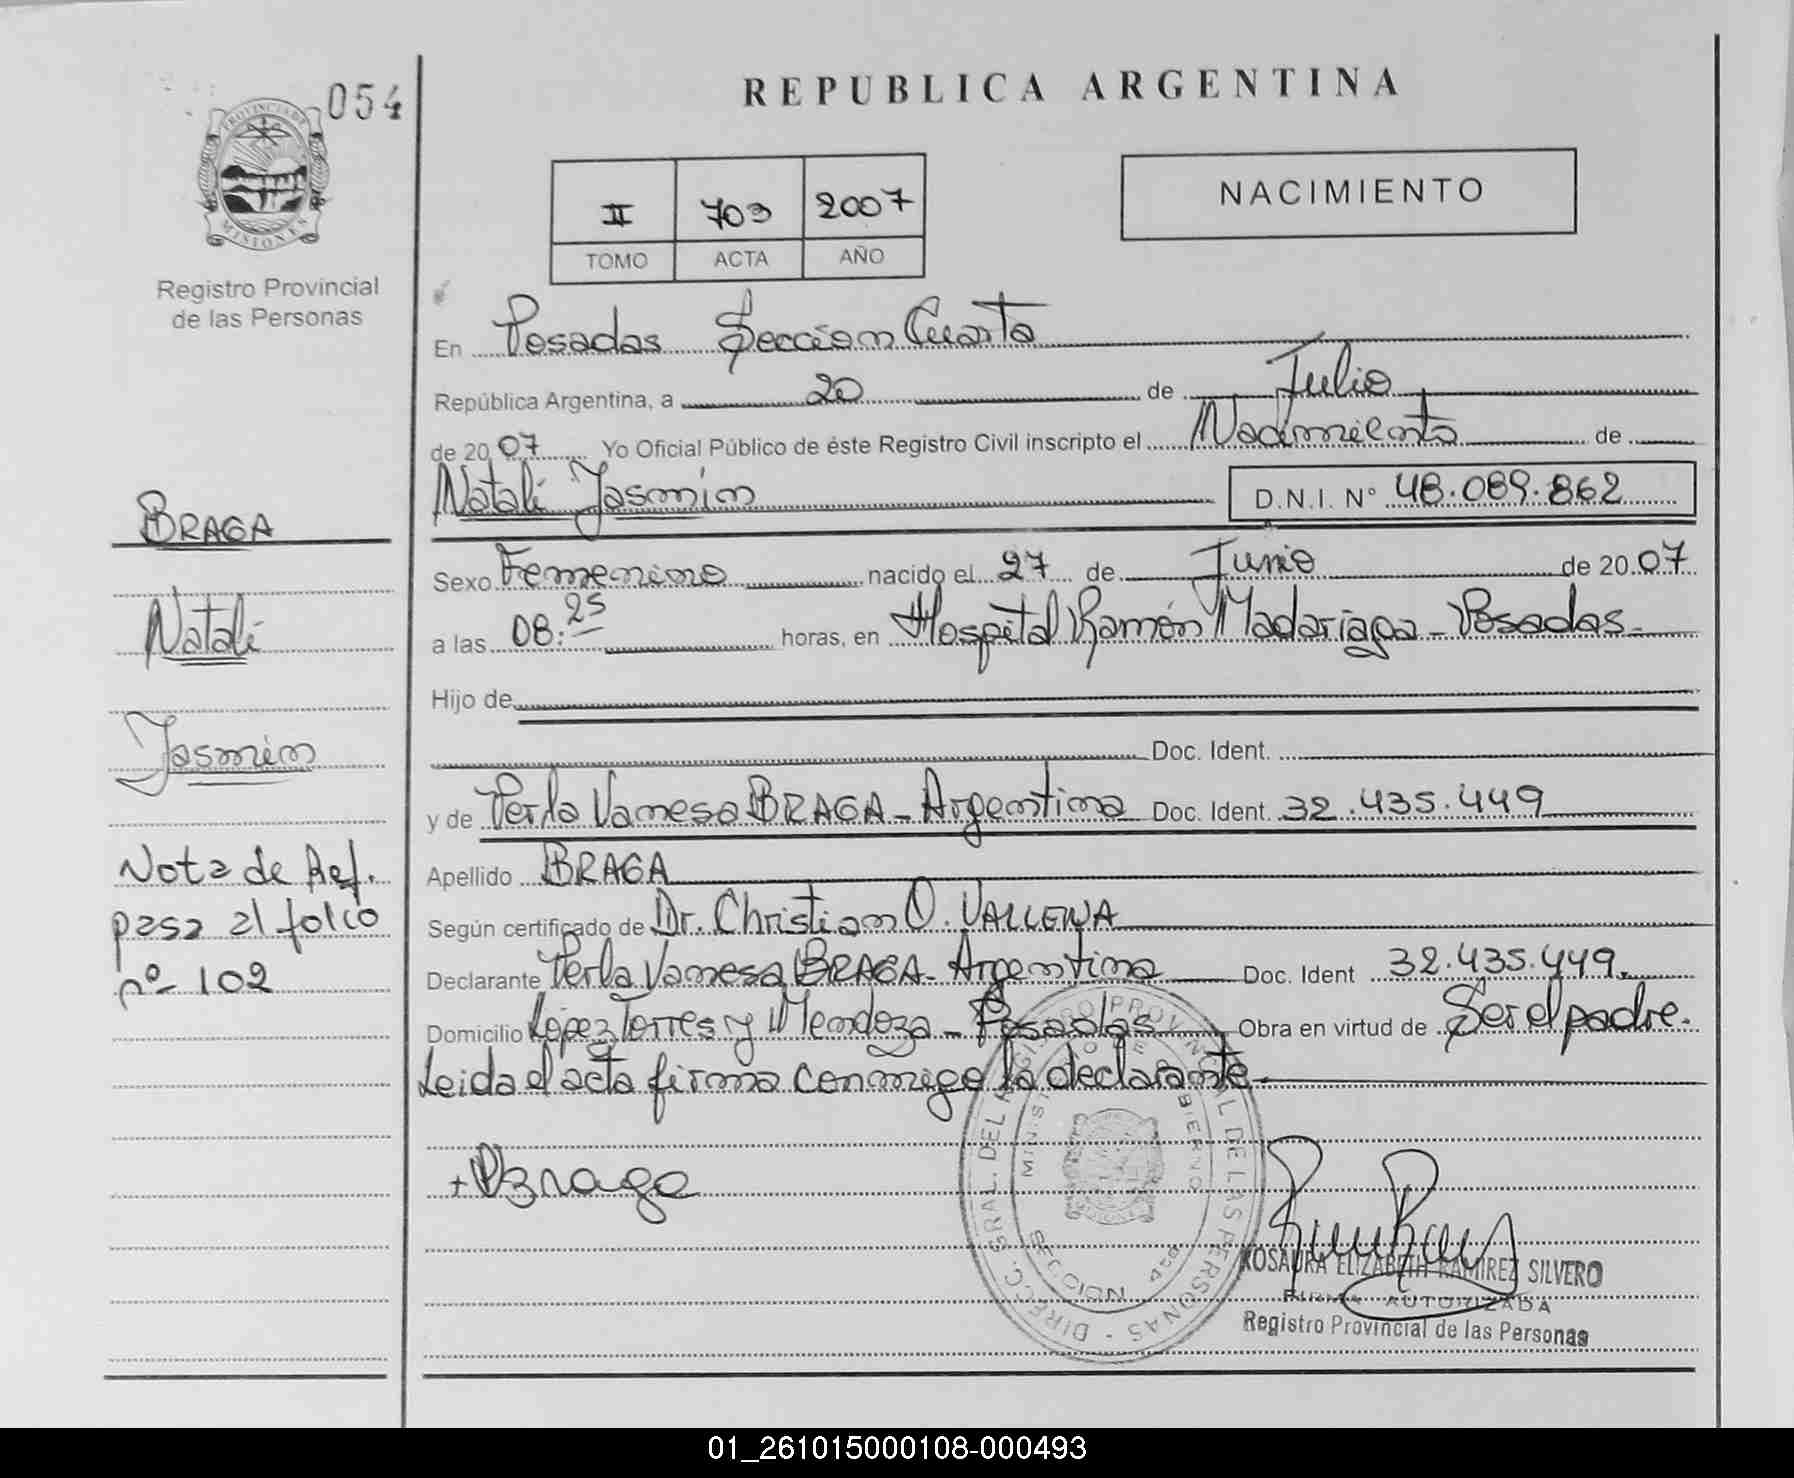 054
PROVINCIA DE
MISIONES
Registro Provincial
de las Personas
REPUBLICA ARGENTINA
II 703 2007
TOMO ACTA AÑO
NACIMIENTO
En Posadas Seccion Cuarta
República Argentina, a 20 de Julio
de 2007 Yo Oficial Público de éste Registro Civil inscripto el Nacimiento de
Natalí Jasmín D.N.I. Nº 48.089.862
BRAGA
Sexo Femenino nacido el 27 de Junio de 2007
Natalí
a las 08:25 horas, en Hospital Ramón Madariaga - Posadas.
Hijo de
Jasmín
Doc. Ident.
y de Perla Vanesa BRAGA - Argentina Doc. Ident. 32.435.449
Nota de Ref.
pasa al folio
nº 102
Apellido BRAGA
Según certificado de Dr. Christian O. VALLEJA
Declarante Perla Vanesa BRAGA - Argentina Doc. Ident 32.435.449.
Domicilio López Torres y Mendoza - Posadas Obra en virtud de Ser el padre.
Leida el acta firma conmigo la declarante.
+ Braga
DIRECC. GRAL. DEL REGISTRO PROVINCIAL DE LAS PERSONAS
MINISTERIO DE GOBIERNO
SECCION 4ta
ROSAURA ELIZABETH RAMIREZ SILVERO
FIRMA AUTORIZADA
Registro Provincial de las Personas
01_261015000108-000493